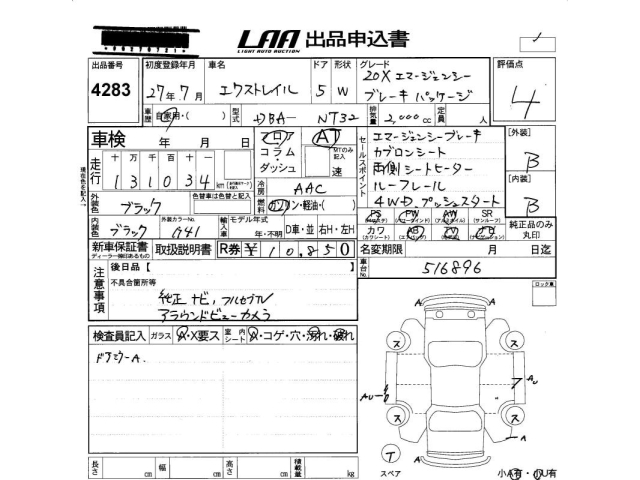 LAA 出品申込書
LIGHT AUTO AUCTION
出品番号 初度登録年月 車名 ドア 形状 グレード 評価点
4283 27年7月 エクストレイル 5 W 20X エマージェンシー
ブレーキ パッケージ 4
車歴 自家用・( ) 型式 DBA- NT32 排気量 2,000cc 定員 人
車検 年 月 日 コラム・ダッシュ AT MTのみ記入 速
走行 十 万 千 百 十 一
131034 km
冷房 AAC
燃料 ガソリン・軽油・( )
セールスポイント
エマージェンシーブレーキ
カプロンシート
両側シートヒーター
ルーフレール
4WD.プッシュスタート
[外装]
B
[内装]
B
外装色 ブラック 色替車は色替と記入
内装色 ブラック 外装カラーNo. G41 輸入車 モデル年式 年・不明 D車・並 右H・左H
PS PW AW SR
カワ AB TV ナビ
純正品のみ丸印
新車保証書 取扱説明書 R券 ¥10,850 名変期限 月 日迄
ディーラー捺印あるもの
注意事項 後日品【
不具合箇所等
純正ナビ,フルセグTV
アラウンドビューカメラ
車台No. 516896
ロック車
検査員記入 ガラス A・X要ス 室内シート A・コゲ・穴・汚れ・破れ
ドアミラーA.
ス ス
AU A AU
ス ス
A
A
T
スペア 小A有・小U有
長さ cm 幅 cm 高さ cm 積載量 kg